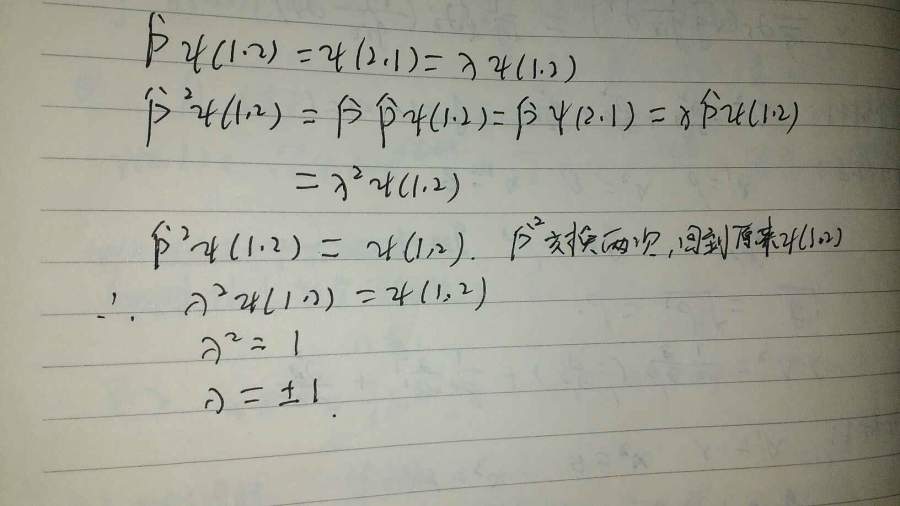 P̂ψ(1.2) = ψ(2.1) = λψ(1.2)
P̂²ψ(1,2) = P̂P̂ψ(1.2) = P̂ψ(2.1) = λP̂ψ(1.2)
= λ²ψ(1.2)
P̂²ψ(1.2) = ψ(1,2). P̂²交换两次,回到原来ψ(1,2)
∴ λ²ψ(1.2) = ψ(1,2)
λ² = 1
λ = ±1.